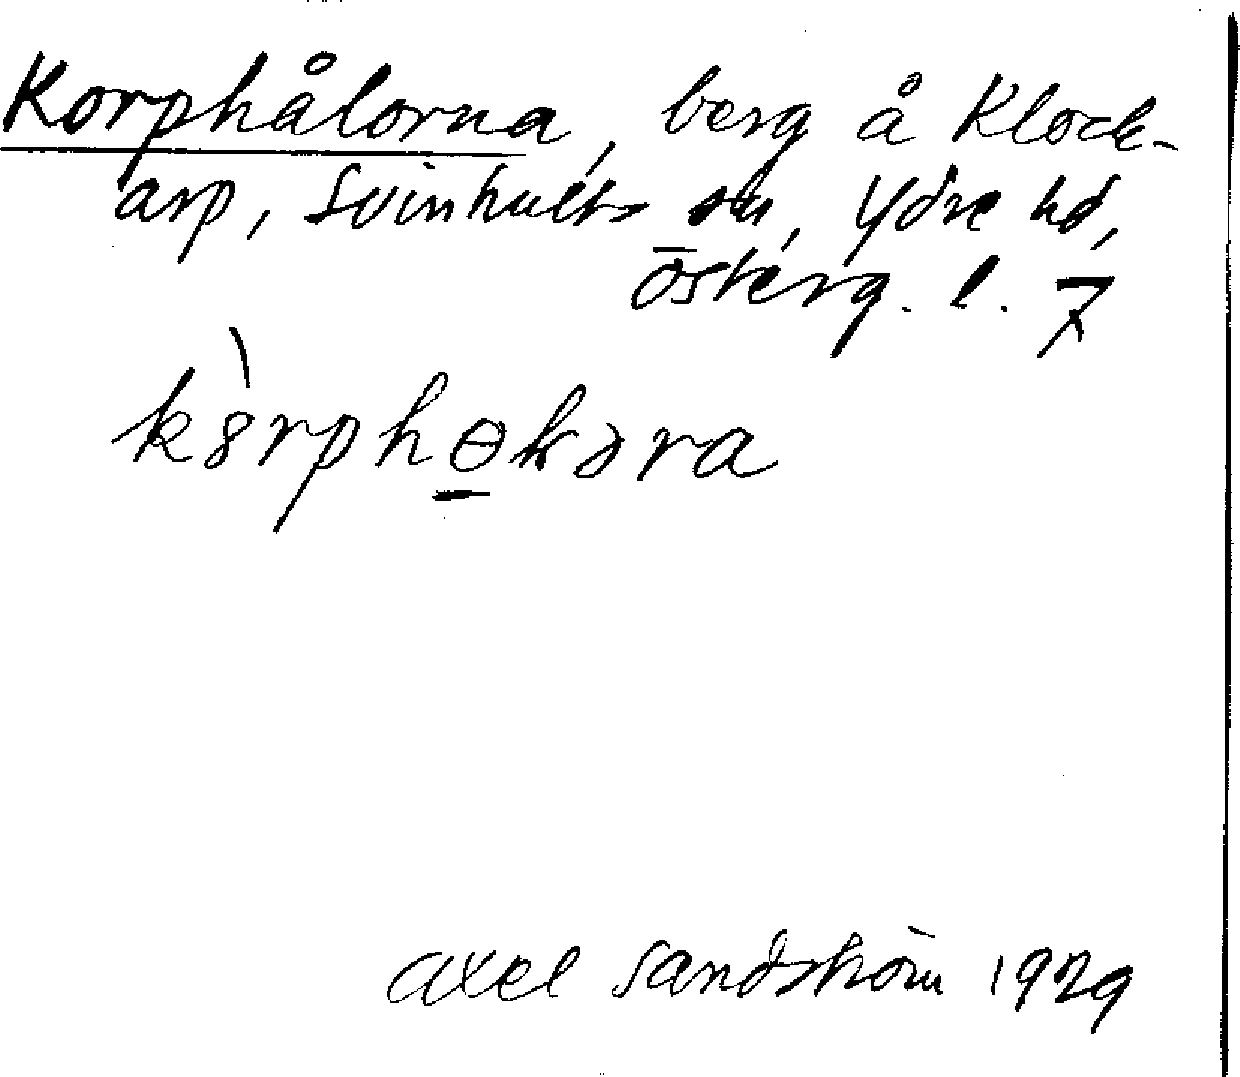 Korphålorna, berg å Klock-
arp, Svinhults sn, Ydre hd,
Österg. l. 7
kòrphɵlɘra
Axel Sandström 1929